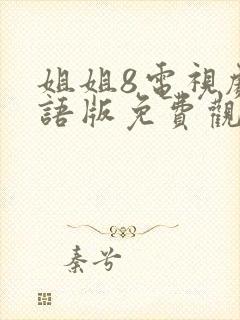 姐姐8電視
語版免費觀
秦兮